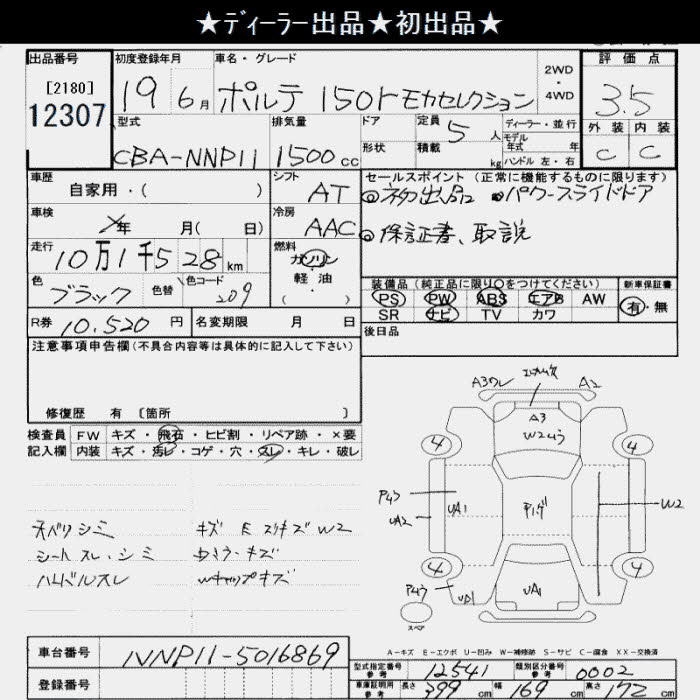 ★ディーラー出品★初出品★
出品番号 初度登録年月 車名・グレード 2WD・4WD 評価点
[2180]
12307
19 6月 ポルテ 150r モカセレクション 3.5
型式 排気量 ドア 定員 5人 ディーラー・並行 外装 内装
CBA-NNP11 1500cc 形状 積載 kg モデル年式 年 C C
ハンドル 左・右
車歴 自家用・( ) シフト AT セールスポイント(正常に機能するものに限ります)
◎初出品 ●パワースライドドア
車検 年 月( 日) 冷房 AAC ◎保証書、取説
走行 10万1千528km 燃料 ガソリン・軽油・( )
色 ブラック 色替 色コード 209
装備品(純正品に限り○をつけてください) 新車保証書
PS PW ABS エアB AW 有・無
SR ナビ TV カワ
R券 10,520円 名変期限 月 日 後日品
注意事項申告欄(不具合内容等は具体的に記入して下さい)
修復歴 有 [箇所 ]
検査員記入欄 FW キズ・飛石・ヒビ割・リペア跡・×要
内装 キズ・汚レ・コゲ・穴・スレ・キレ・破レ
A3 ワレ A2
A3
W2
4 4
UA1 UA2 W2
4 4
UA1 UA1
スペア
シミ キズ W2
シートスレ・シミ キズ
ハンドルスレ Wキャップキズ
A-キズ E-エクボ U-凹み W-補修跡 S-サビ C-腐食 XX-交換済
車台番号 NNP11-5016869
登録番号
型式指定番号 参考 12541 類別区分番号 参考 0002
車庫証明用 参考 長さ 399cm 幅 169cm 高さ 172cm